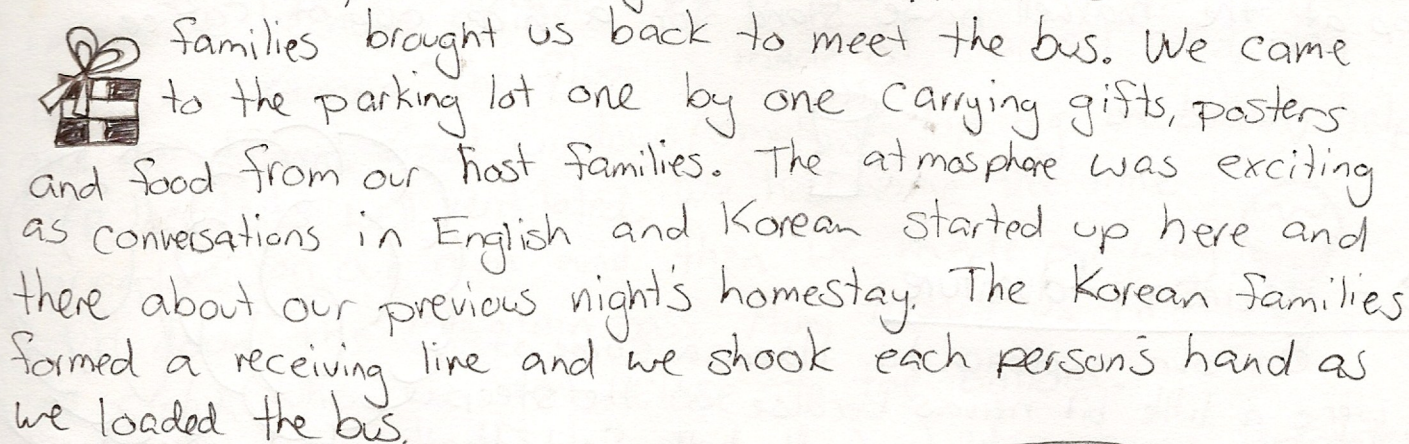 families brought us back to meet the bus. We came
to the parking lot one by one carrying gifts, posters
and food from our host families. The atmosphere was exciting
as conversations in English and Korean started up here and
there about our previous night's homestay. The Korean families
formed a receiving line and we shook each person's hand as
we loaded the bus.